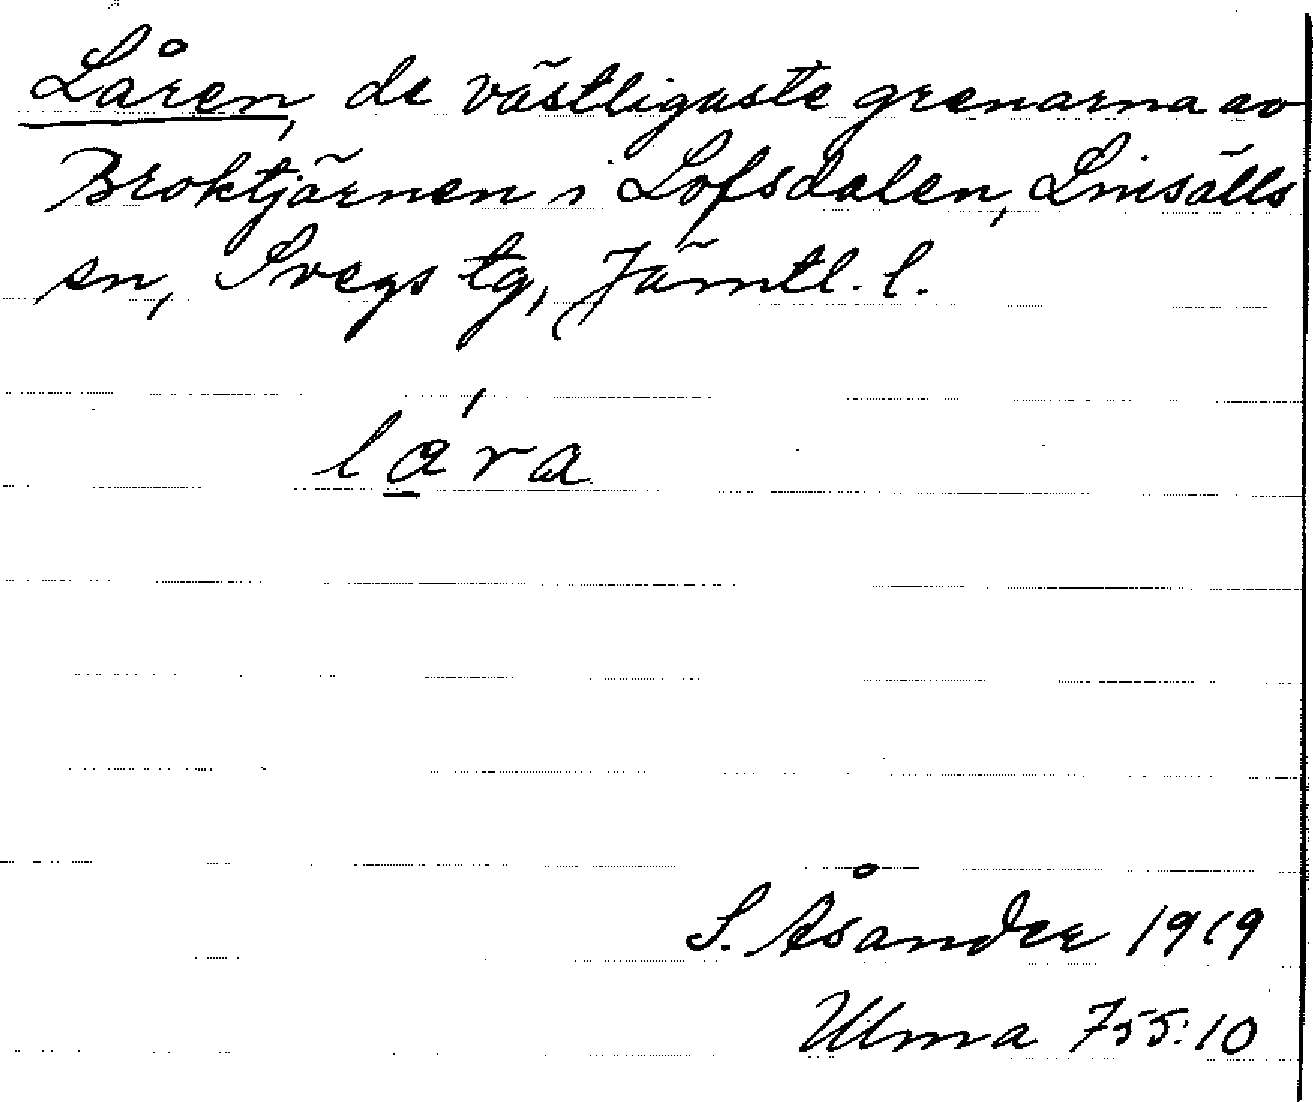 Låren, de västligaste grenarna av
Broktjärnen i Lofsdalen, Linsälls
sn, Svegs tg, Jämtl. l.
lára
S. Åsander 1919
Ulma 755:10